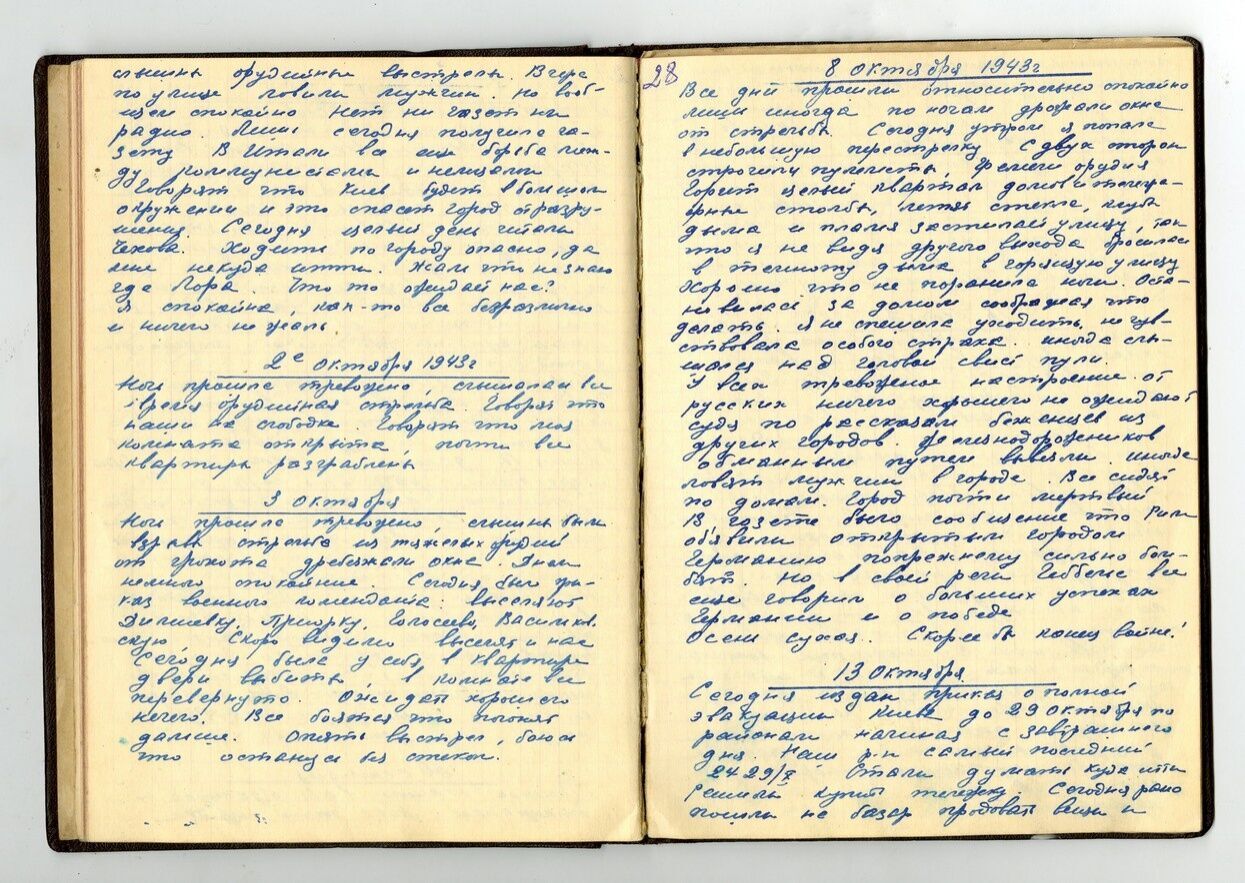 слышны орудийные выстрелы. Вчера
по улице ловили мужчин. но вооб-
щем спокойно нет ни газет ни
радио. Лишь сегодня получила га-
зету. В Итали все еще борьба меж-
ду коммунистами и немцами
Говорят что Киев будет в большом
окружении и это спасет город от разру-
шения. Сегодня целый день читали
Чехова. Ходить по городу опасно, да
мне некуда итти. Жаль что не знаю
где Лора. Что то ожидает нас?
Я спокойна, как-то все безразлично
и ничего не жаль
2е октября 1943г
Ночь прошла тревожно, слышалась все
время орудийная стрельба. Говорят что
наши на слободке. Говорят что моя
комната открыта, почти все
квартиры разграблены
3 октября
Ночь прошла тревожно, слышны были
взрывы стрельба из тяжелых орудий
от грохота дребезжали окна. Днем
немного спокойние. Сегодня был при-
каз военного коменданта: выселяют
Демиевку, Приорку, Голосеево, Васильков.
скую. Скоро видимо выселят и нас
Сегодня была у себя в квартире
двери выбиты, в комнате все
перевернуто. Ожидать хорошего
нечего. Все боятся что погонят
дальше. Опять выстрел, боюсь
что останусь без стекол.
28
8 октября 1943г
Все дни прошли относительно спокойно
лиш иногда по ночам дрожали окна
от стрельбы. Сегодня утром я попала
в небольшую перестрелку. С двух сторон
строчили пулеметы, орудия
Горит целый квартал домов и телегра-
фные столбы, стекла, клубы
дыма и пламя застилает улицу, так
что я не видя другого выхода бросилась
в темноту дыма в горящую улицу
Хорошо что не поранила ноги. Оста-
новилась за домом соображая что
делать. Я не спешила уходить, не чув-
ствовала особого страха. иногда слы-
шался над головой свист пули.
У всех тревожное настроение. от
русских ничего хорошего не ожидают
судя по рассказам беженцев из
других городов. Железнодорожников
обманным путем вывезли. иногда
ловят мужчин в городе. Все сидят
по домам. Город почти мертвый
В газете было сообщение что Рим
объявили открытым городом
Германию попрежнему сильно бом-
бят. Но в своей речи Геббельс все
еще говорил о больших успехах
Германии и о победе
Осень сухая. Скорее бы конец войне!
13 Октября
Сегодня издан приказ о полной
эвакуации Киева до 29 октября по
районам начиная с завтрашнего
дня. Наш р-н самый последний
24 29/X Стали думать куда итти
Решили купить тележку. Сегодня рано
пошли на базар продовать вещи и